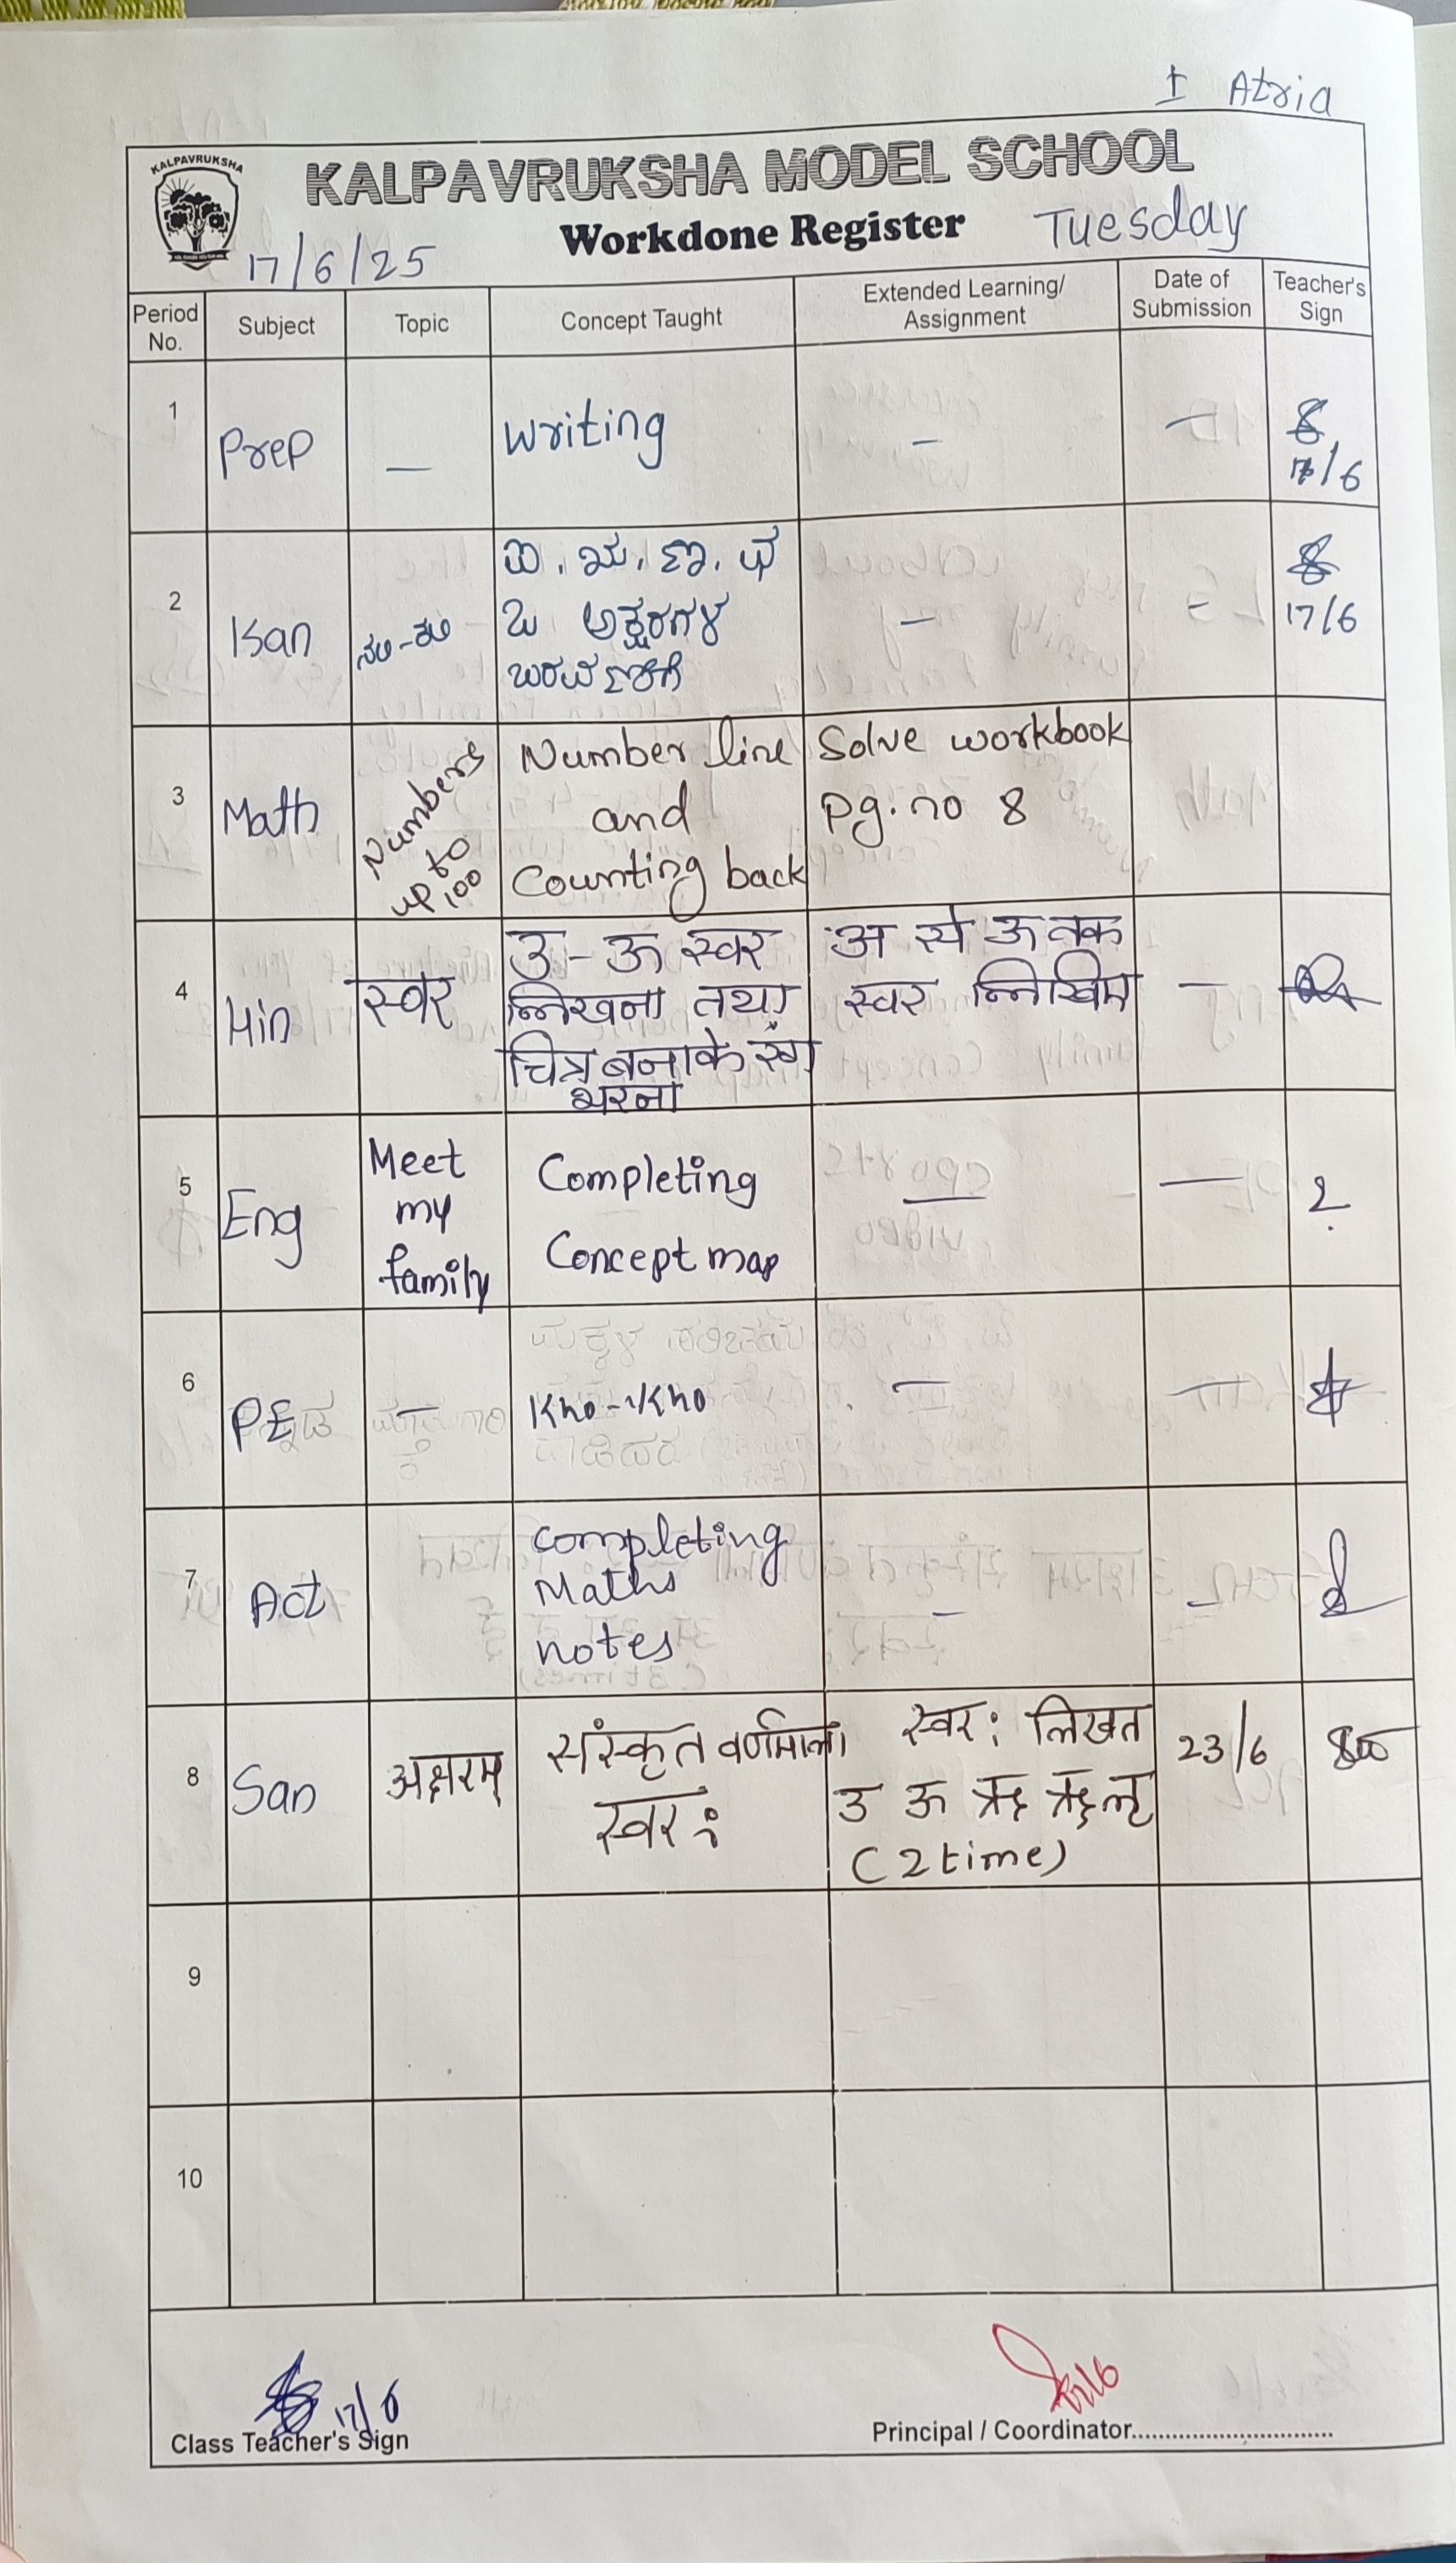 I Atria
KALPAVRUKSHA
KALPAVRUKSHA MODEL SCHOOL
Workdone Register Tuesday
17/6/25
Period No. Subject Topic Concept Taught Extended Learning/ Assignment Date of Submission Teacher's Sign
1 Prep — Writing — —
17/6
2 Kan ನಲಿ-ಕಲಿ
ಅಕ್ಷರಗಳ
ಬರವಣಿಗೆ
— — 17/6
3 Math Numbers up to 100
Number line and Counting back
Solve workbook
pg. no 8
4 Hin स्वर
उ - ऊ स्वर
लिखना तथा
चित्र बनाके रंग
भरना
अ से ऊ तक
स्वर लिखिए
—
5 Eng Meet my family
Completing
Concept map
— —
6 PE — Kho-Kho — —
7 Act
Completing
Maths
notes
— —
8 San अक्षरम्
संस्कृत वर्णमाला
स्वर:
स्वर: लिखत
उ ऊ ऋ ॠ ऌ
(2 time)
23/6
9
10
17/6
Class Teacher's Sign
Principal / Coordinator..............................